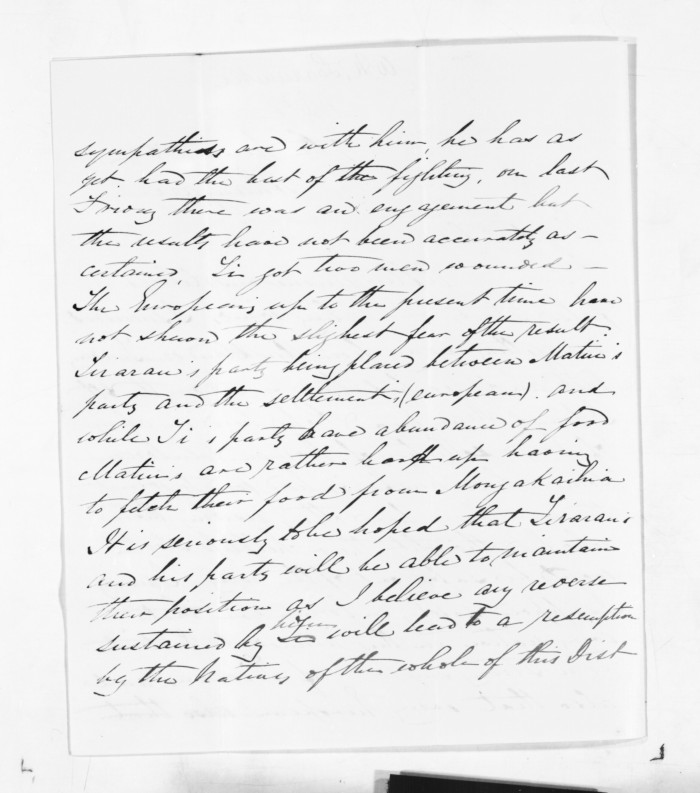 sympathies are with him, he has as
yet had the best of the fighting, on last
Friday there was an engagement but
the results have not been accurately as-
certained, Ti got two men wounded -
The Europeans up to the present time have
not shewn the slightest fear of the result.
Tirarau's party being placed between Matiu's
party and the settlement, (european). and
while Ti's party have abundance of food
Matiu's are rather hard up having
to fetch their food from Mongakaihia
It is seriously to be hoped that Tirarau's
and his party will be able to maintain
their position as I believe any reverse
sustained by him will lead to a resumption
by the Natives of the whole of this Dist